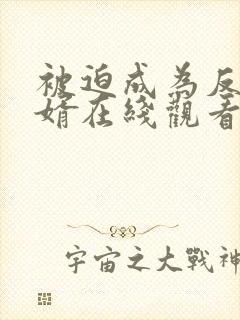 被迫成為反
婿在綫觀看
宇宙之大戰神